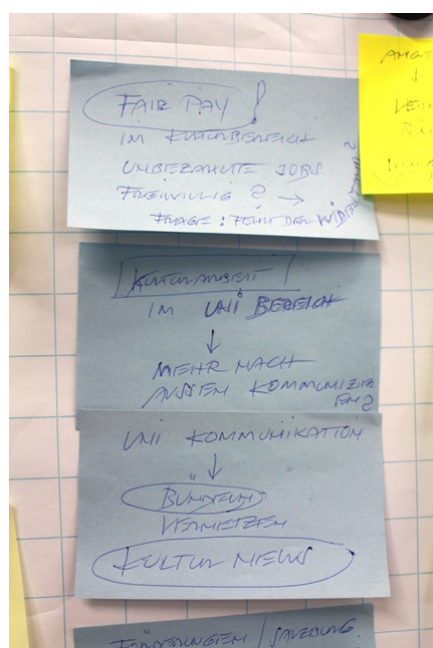 FAIR PAY !
IM KULTURBEREICH
UNBEZAHLTE JOBS
FREIWILLIG ? →
FRAGE : FEHLT DER WIDERSTAND?
KULTURARBEIT
IM UNI BEREICH
↓
MEHR NACH
AUSSEN KOMMUNIZIE
REN?
UNI KOMMUNIKATION
↓
BÜNDELN
VERNETZEN
KULTUR NEWS
FÖRDERUNGEN / SALZBURG